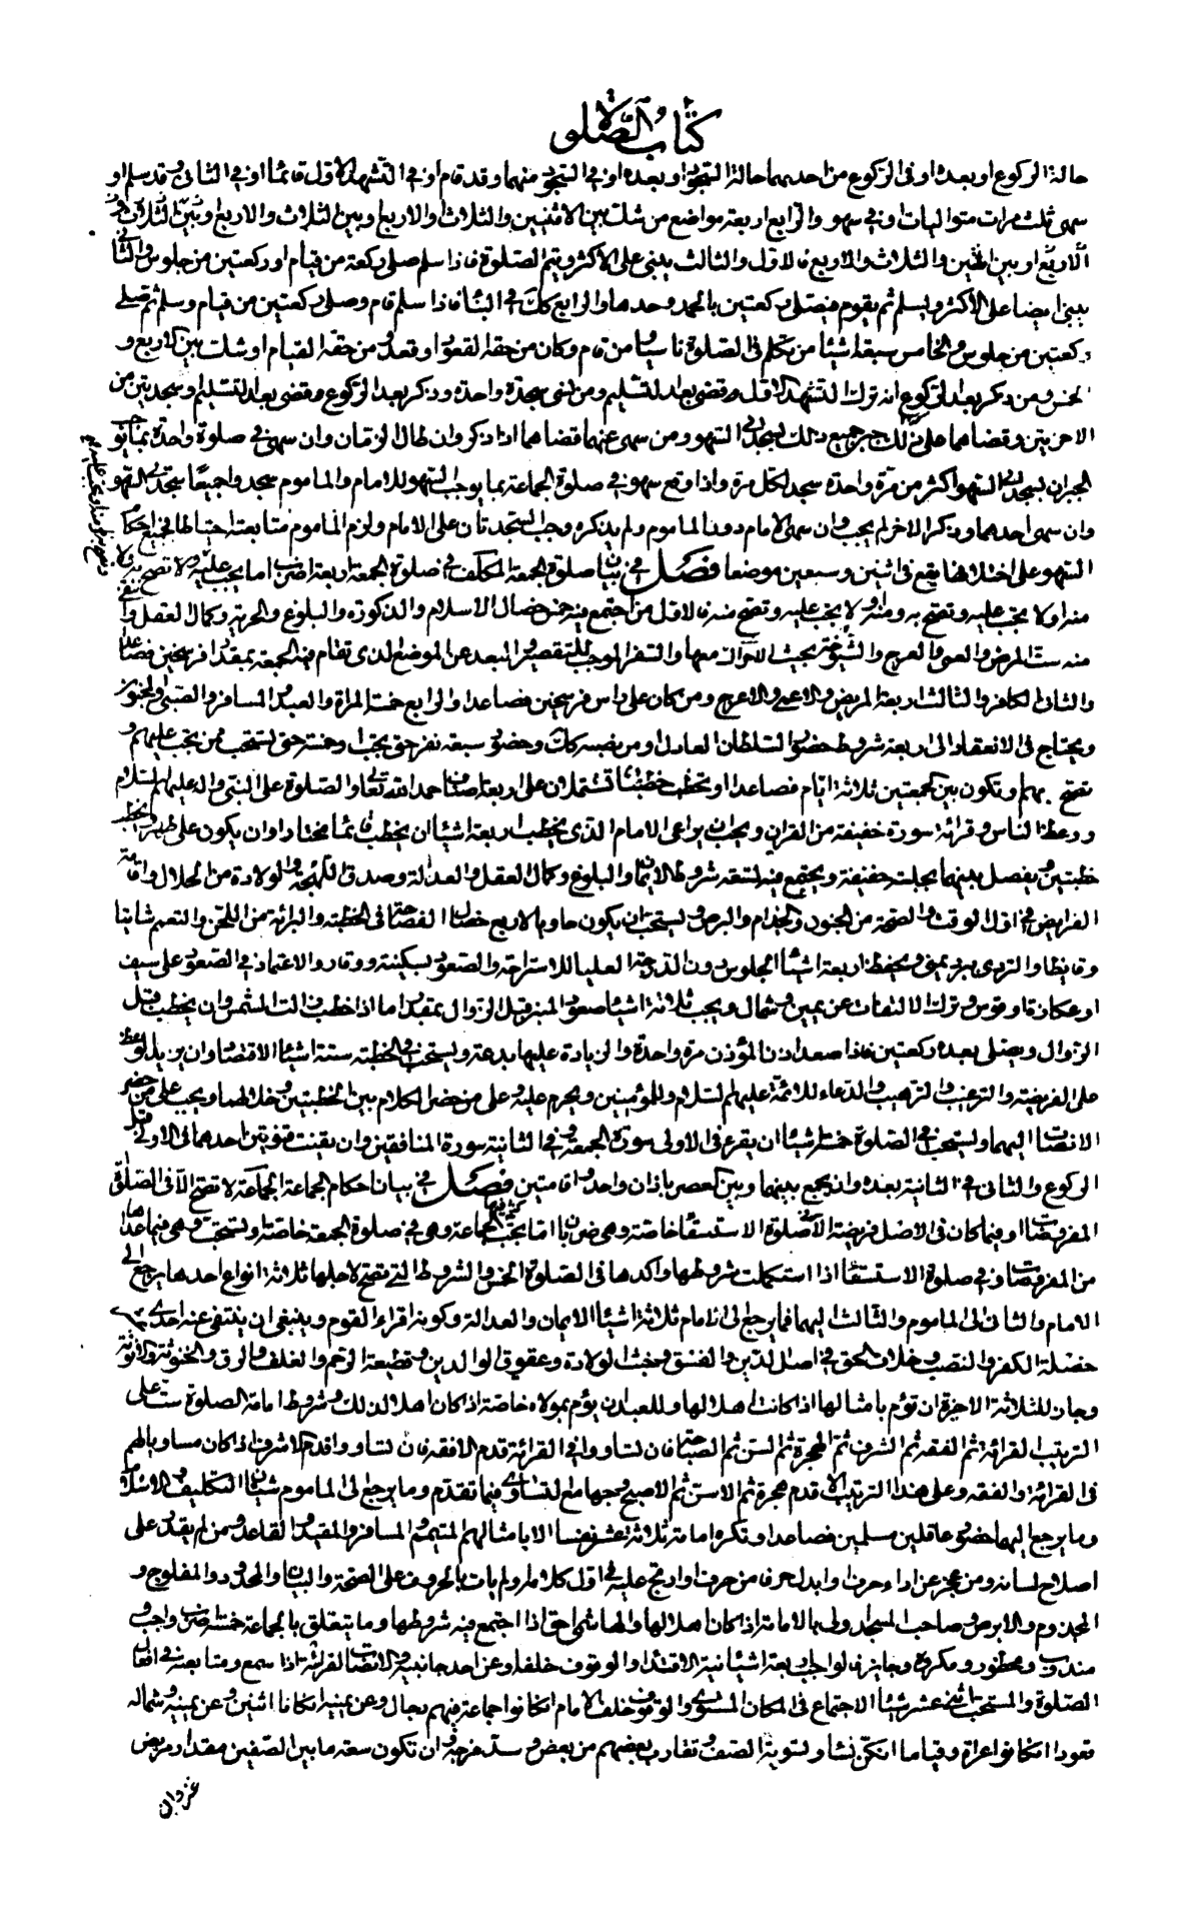 كتاب الصلوة
حالة الركوع او بعده او فى الركوع من احديهما حالة السجود او بعده او فى السجود منهما وقد قام او فى التشهد الاول قائما او فى الثانى وقد سلم او
سهى ثلث مرات متواليات او فى سهو والرابع اربعة مواضع من شك بين الاثنين والثلاث والاربع او بين الثلاث والاربع او بين الثلاث
الاربع او بين اثنين والثلاث والاربع فالاول والثالث يبنى على الاكثر ويتم الصلوة فاذا سلم صلى ركعة من قيام او ركعتين من جلوس والثانى
يبنى ايضا على الاكثر ويسلم ثم يقوم فيصلى ركعتين بالحمد وحدها والرابع كك فى البناء فاذا سلم قام وصلى ركعتين من قيام وسلم ثم صلى
ركعتين من جلوس والخامس سبعة اشياء من تكلم فى الصلوة ناسيا ومن قام وكان من حقه القعود او قعد وكان من حقه القيام او شك بين الاربع و
الخمس ومن ذكر بعد الركوع انه ترك التشهد الاول وقضى بعد التسليم ومن نسى سجدة واحدة وذكر بعد الركوع وقضى بعد التسليم او سجدتين من
الاخريتين وقضاهما على ذلك جبر جميع ذلك بسجدتى السهو ومن سهى عنهما قضاهما اذا ذكر وان طال الزمان وان سهى فى صلوة واحدة بما يوجب
الجبران بسجدتى السهو اكثر من مرة واحدة سجد لكل مرة واذا وقع سهو فى صلوة الجماعة بما يوجب السهو للامام والماموم سجدوا جميعا سجدتى السهو
وان سهى احدهما وذكر الاخر لم يجب وان سهى الامام دون الماموم ولم يذكره وجب السجدتان على الامام ولزم الماموم متابعته احتياطا فجميع احكام
السهو على اختلافها يقع فى اثنين وسبعين موضعا فصل فى بيان صلوة الجمعة المكلف فى صلوة الجمعة اربعة اضرب اما يجب عليه ولا تصح
منه او لا يجب عليه وتصح به ومنه او لا يجب عليه وتصح منه فالاول من اجتمع فيه خمس خصال الاسلام والذكورة والبلوغ والحرية وكمال العقل
منه ست المرض والعمى والعرج والشيخوخة بحيث لا حراك معها والسفر الموجب للتقصير والبعد عن الموضع الذى تقام فيه الجمعة بمقدار فرسخين فصاعدا
والثانى الكافر والثالث اربعة المريض والاعمى والاعرج ومن كان على راس فرسخين فصاعدا والرابع خمسة المراة والعبد والمسافر والصبى والمجنون
ويحتاج فى الانعقاد الى اربعة شروط حضور السلطان العادل او من نصبه كك وحضور سبعة نفر حتى يجب او خمسة حتى يستحب ممن يجب عليهم و
تصح بهم وتكون بين الجمعتين ثلاثة ايام فصاعدا وتخطب خطبتان تشتملان على اربعة اصناف حمد الله تعالى والصلوة على النبى واله عليهم السلام
ووعظ الناس وقرائة سورة خفيفة من القران ويجب ان يراعى الامام الذى يخطب اربعة اشياء ان يخطب قائما مختارا وان يكون على طهر
خطبتين ويفصل بينهما بجلسة خفيفة ويجتمع فيه تسعة شروط الايمان والبلوغ وكمال العقل والعدالة وصدق اللهجة والولادة من الحلال واقامة
الفرايض فى اول الوقت والصحة من الجنون والجذام والبرص ويستحب ان يكون حاويا لاربع خصال الفصاحة فى الخطبة والبرائة من اللحن والتعمم شاتيا
وقايظا والتردى ببرد يمنى ويحفظ اربعة اشياء الجلوس دون الدرجة العليا للاستراحة والصعود بسكينة ووقار والاعتماد فى الصعود على سيف
او عكازة او قوس وترك الالتفات عن يمين وشمال ويجب ثلاثة اشياء صعود المنبر قبل الزوال بمقدار ما اذا خطب زالت الشمس وان يخطب قبل
الزوال ويصلى بعده ركعتين فاذا صعد اذن المؤذن مرة واحدة والزيادة عليها بدعة ويستحب فى الخطبة ستة اشياء الاقتصاد وان يزيد الوعظ
على الفريضة والترغيب والترهيب والدعاء للائمة عليهم السلام وللمؤمنين ويحرم عليه وعلى من حضر الكلام بين الخطبتين وخلالهما ويجب على من حضر
الانصات اليهما ويستحب فى الصلوة خمسة اشياء ان يقرء فى الاولى سورة الجمعة وفى الثانية سورة المنافقين وان يقنت قنوتين احدهما فى الاولى قبل
الركوع والثانى فى الثانية بعده وان يجمع بينهما وبين العصر باذان واحد واقامتين فصل فى بيان احكام الجماعة الجماعة لا تصح الا فى الصلوة
المفروضات او فيما كان فى الاصل فريضة الا صلوة الاستسقاء خاصة وهى ضربان اما يجب الجماعة وهى فى صلوة الجمعة خاصة او تستحب وهى فيما عداها
من المفروضات وفى صلوة الاستسقاء اذا استكملت شروطها واكدها فى الصلوة الخمس والشروط التى تصح لاجلها ثلاثة انواع احدها يرجع الى
الامام والثانى الى الماموم والثالث اليهما فما يرجع الى الامام ثلاثة اشياء الايمان والعدالة وكونه اقرء القوم وينبغى ان ينتفى عنه احدى
خصلة الكفر والنصب وخلاف الحق فى اصل الدين والفسق وخبث الولادة وعقوق الوالدين وقطيعة الرحم والغلف والرق والخنوثة والانوثة
وجاز للثلاثة الاخيرة ان تؤم بامثالها اذا كانت اهلا لها وللعبد ان يؤم بمولاه خاصة اذا كان اهلا لذلك وشروط امامة الصلوة ست على
الترتيب القرائة ثم الفقه ثم الشرف ثم الهجرة ثم السن ثم الصباحة فان تساووا فى القرائة قدم الافقه فان تساووا قدم الاشرف اذا كان مساويا لهم
فى القرائة والفقه وعلى هذا الترتيب الاقدم هجرة ثم الاسن ثم الاصبح وجها مع التساوى فيما تقدم وما يرجع الى الماموم شيئان التكليف والاسلام
وما يرجع اليهما حضور عاقلين مسلمين فصاعدا وتكره امامة ثلاثة عشر نفسا الا بامثالهم المتيمم والمسافر والمقيد والقاعد ومن لم يقدر على
اصلاح لسانه ومن عجز عن اداء حرف او ابدل حرفا من حرف او ارتج عليه فى اول كلامه او لم يات بالحروف على الصحة والبيان والمحدود والمفلوج و
المجذوم والابرص وصاحب المسجد اولى بالامامة اذا كان اهلا لها والهاشمى احق اذا اجتمع فيه شروطها وما يتعلق بالجماعة خمسة اضرب واجب و
مندوب ومحظور ومكروه وجايز فالواجب اربعة اشياء نية الاقتداء والوقوف خلفه او عن احد جانبيه والانصات لقرائته اذا سمع ومتابعته فى افعال
الصلوة والمستحب اثنى عشر شيئا الاجتماع فى المكان المستوى والوقوف خلف الامام ان كانوا جماعة فيهم رجال وعن يمينه ان كانا اثنين وعن يمينه وشماله
قعودا ان كانوا عراة وقياما ان كن نساء وتسوية الصف وتقارب بعضهم من بعض وسد فرجه وان تكون سعة ما بين الصفين مقدار مربض